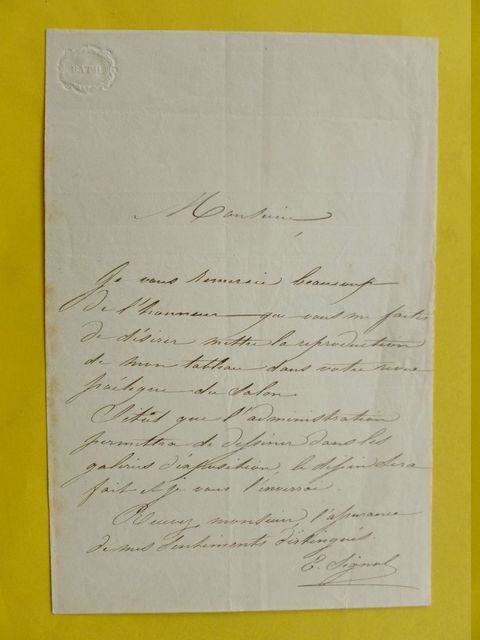 BATH
Monsieur,
Je vous remercie beaucoup
de l'honneur que vous me faites
de désirer mettre la reproduction
de mon tableau dans votre revue
poétique du Salon.
Sitôt que l'administration
permettra de dessiner dans les
galeries d'exposition, le dessin sera
fait et je vous l'enverrai.
Recevez, monsieur, l'assurance
de mes sentiments distingués.
E. Signol